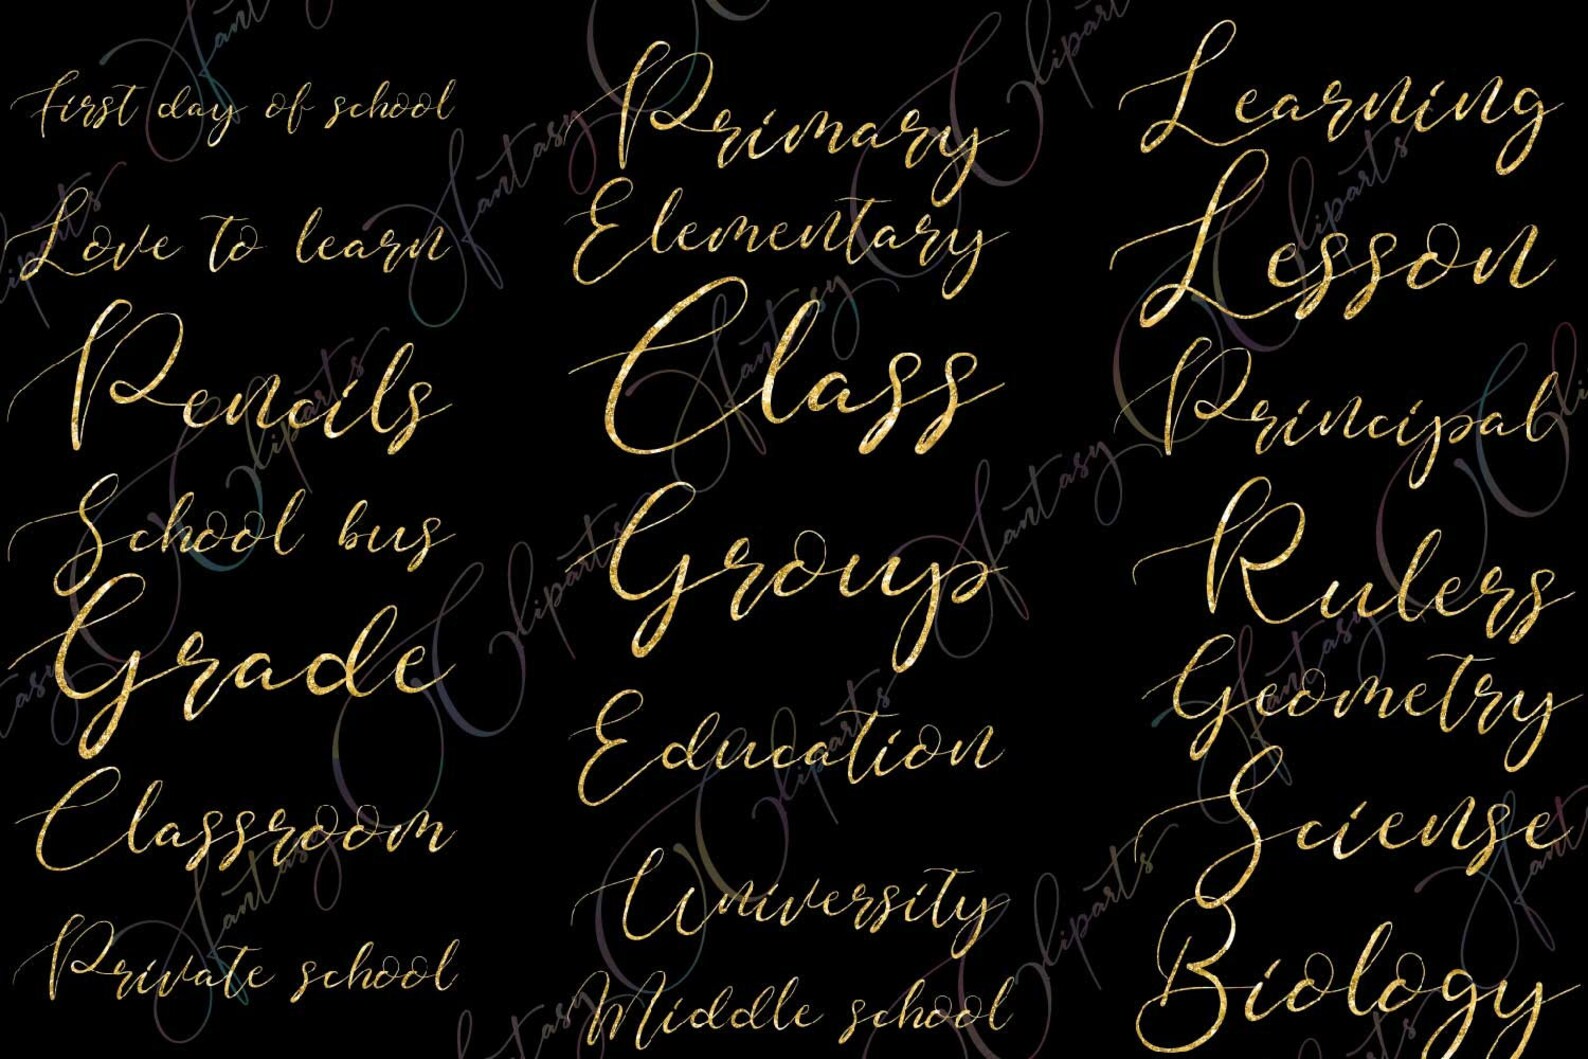 First day of school
Love to learn
Pencils
School bus
Grade
Classroom
Private school
Primary
Elementary
Class
Group
Education
University
Middle school
Learning
Lesson
Principal
Rulers
Geometry
Sciense
Biology
fantasy Cliparts